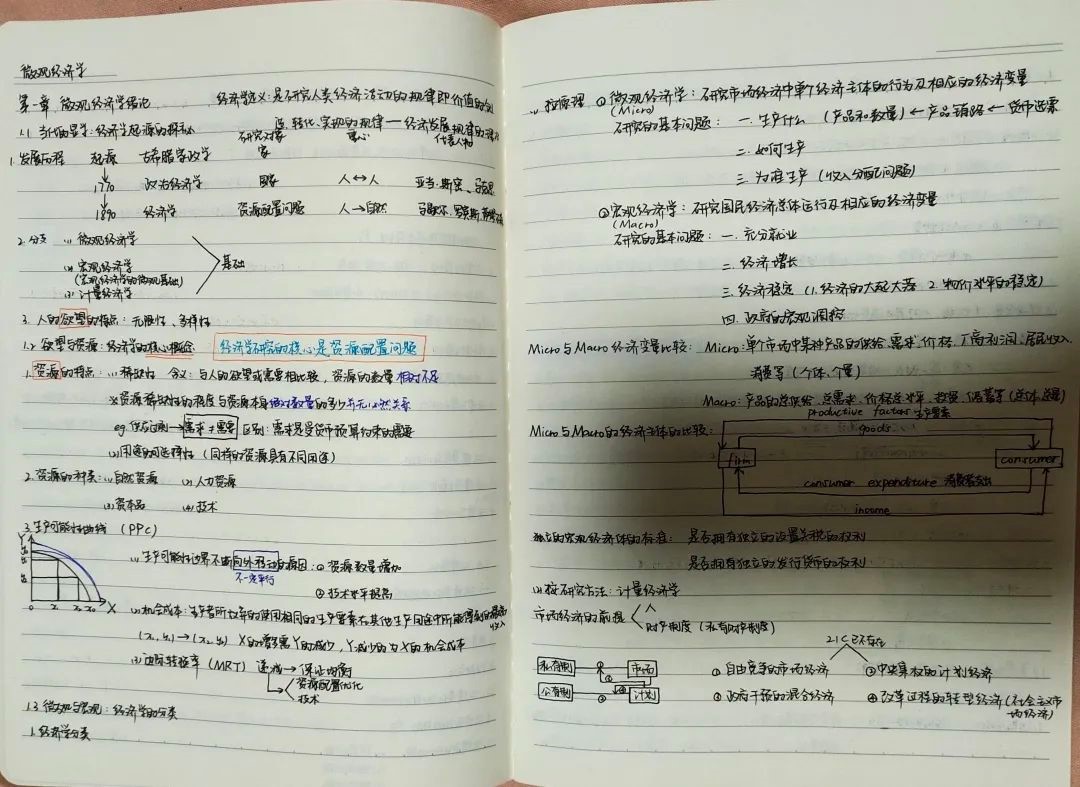 微观经济学
第一章 微观经济学绪论 经济学定义:是研究人类经济活动的规律即价值的创
造、转化、实现的规律——经济发展规律的理论
1.1 当代显学:经济学起源的探秘
研究对象 重心 代表人物
1.发展历程 起源 古希腊家政学 家
1770 政治经济学 国家 人↔人 亚当·斯密、马克思
1890 经济学 资源配置问题 人→自然 马歇尔、罗宾斯、
2.分支 (1)微观经济学
(2)宏观经济学 基础
(宏观经济学的微观基础)
(3)计量经济学
3.人的欲望的特点:无限性、多样性
1.2 欲望与资源:经济学的核心概念 经济学研究的核心是资源配置问题
1.资源的特点:(1)稀缺性 含义:与人的欲望或需要相比较,资源的数量相对不足
※资源稀缺性的程度与资源本身绝对数量的多少并无必然关系
eg.供应过剩→需求≠需要 区别:需求是受货币预算约束的需要
(2)用途的可选择性(同样的资源具有不同用途)
2.资源的种类:(1)自然资源 (2)人力资源
(3)资本品 (4)技术
3.生产可能性曲线 (PPC)
(1)生产可能性边界不断向外移动的原因:①资源数量增加
不一定平行
②技术水平提高
Y
0 X
(2)机会成本:生产者所放弃的使用相同的生产要素在其他生产用途中所能得到的最高收入
(x₁,y₁)→(x₂,y₂) X的增多需Y的减少,Y减少的为X的机会成本
(3)边际转换率(MRT) 递减→保证均衡
资源配置优化
技术
1.3 微观与宏观:经济学的分类
1.经济学分类
(1)按原理 ①微观经济学:研究市场经济中单个经济主体的行为及相应的经济变量
(Micro)
研究的基本问题:一.生产什么 (产品和数量)←产品销路←货币选票
二.如何生产
三.为谁生产(收入分配问题)
②宏观经济学:研究国民经济总体运行及相应的经济变量
(Macro)
研究的基本问题:一.充分就业
二.经济增长
三.经济稳定(1.经济的大起大落 2.物价水平的稳定)
四.政府的宏观调控
Micro与Macro经济变量比较:Micro:单个市场中某种产品的供给、需求、价格、厂商利润、居民收入、
消费等(个体、个量)
Macro:产品的总供给、总需求、价格总水平、投资、储蓄等(总体、总量)
Micro与Macro的经济主体的比较:
productive factors 生产要素
goods
firm consumer
consumer expenditure 消费者支出
income
独立的宏观经济体的标准:是否拥有独立的设置关税的权利
是否拥有独立的发行货币的权利
(2)按研究方法:计量经济学
市场经济的前提
财产制度(私有财产制度)
21C已不存在
私有制 市场 ①自由竞争的市场经济 ③中央集权的计划经济
公有制 计划 ②政府干预的混合经济 ④改革过程的转型经济(社会主义市场经济)